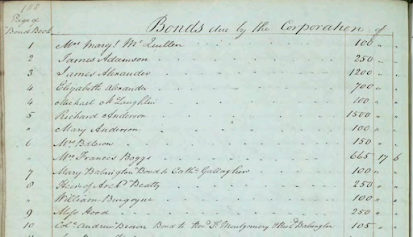 188
Page of
Bond Book
Bonds due by the Corporation of
1 Mrs Margt. McQuitten 100 "
2 James Adamson 250 "
3 James Alexander 1200 "
4 Elizabeth Alexander 700 "
4 Rachael A Laughlin 100 "
5 Richard Anderson 1500 "
" Mary Anderson 100 "
6 Mrs Batson 150 "
Mrs Frances Boggs 665 17 6
7 Mary Babington Bond to Cathe Gallagher 100 "
8 Heirs of Archd Beatty 250 "
" William Burgoyne 100 "
9 Miss Hood 250 "
10 Andrew Bond to Revd. Montgomery & Babington 105 "